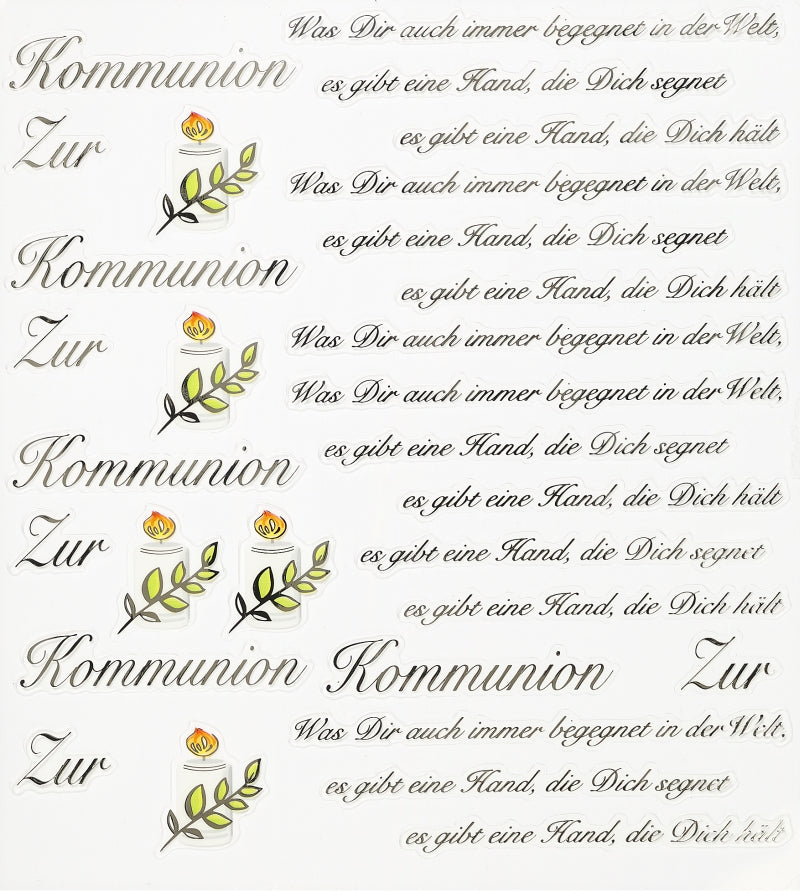 Was Dir auch immer begegnet in der Welt,
Kommunion
es gibt eine Hand, die Dich segnet
Zur
es gibt eine Hand, die Dich hält
Was Dir auch immer begegnet in der Welt,
es gibt eine Hand, die Dich segnet
Kommunion
es gibt eine Hand, die Dich hält
Zur
Was Dir auch immer begegnet in der Welt,
Was Dir auch immer begegnet in der Welt,
es gibt eine Hand, die Dich segnet
Kommunion
es gibt eine Hand, die Dich hält
Zur
es gibt eine Hand, die Dich segnet
es gibt eine Hand, die Dich hält
Kommunion Kommunion Zur
Was Dir auch immer begegnet in der Welt,
Zur
es gibt eine Hand, die Dich segnet
es gibt eine Hand, die Dich hält